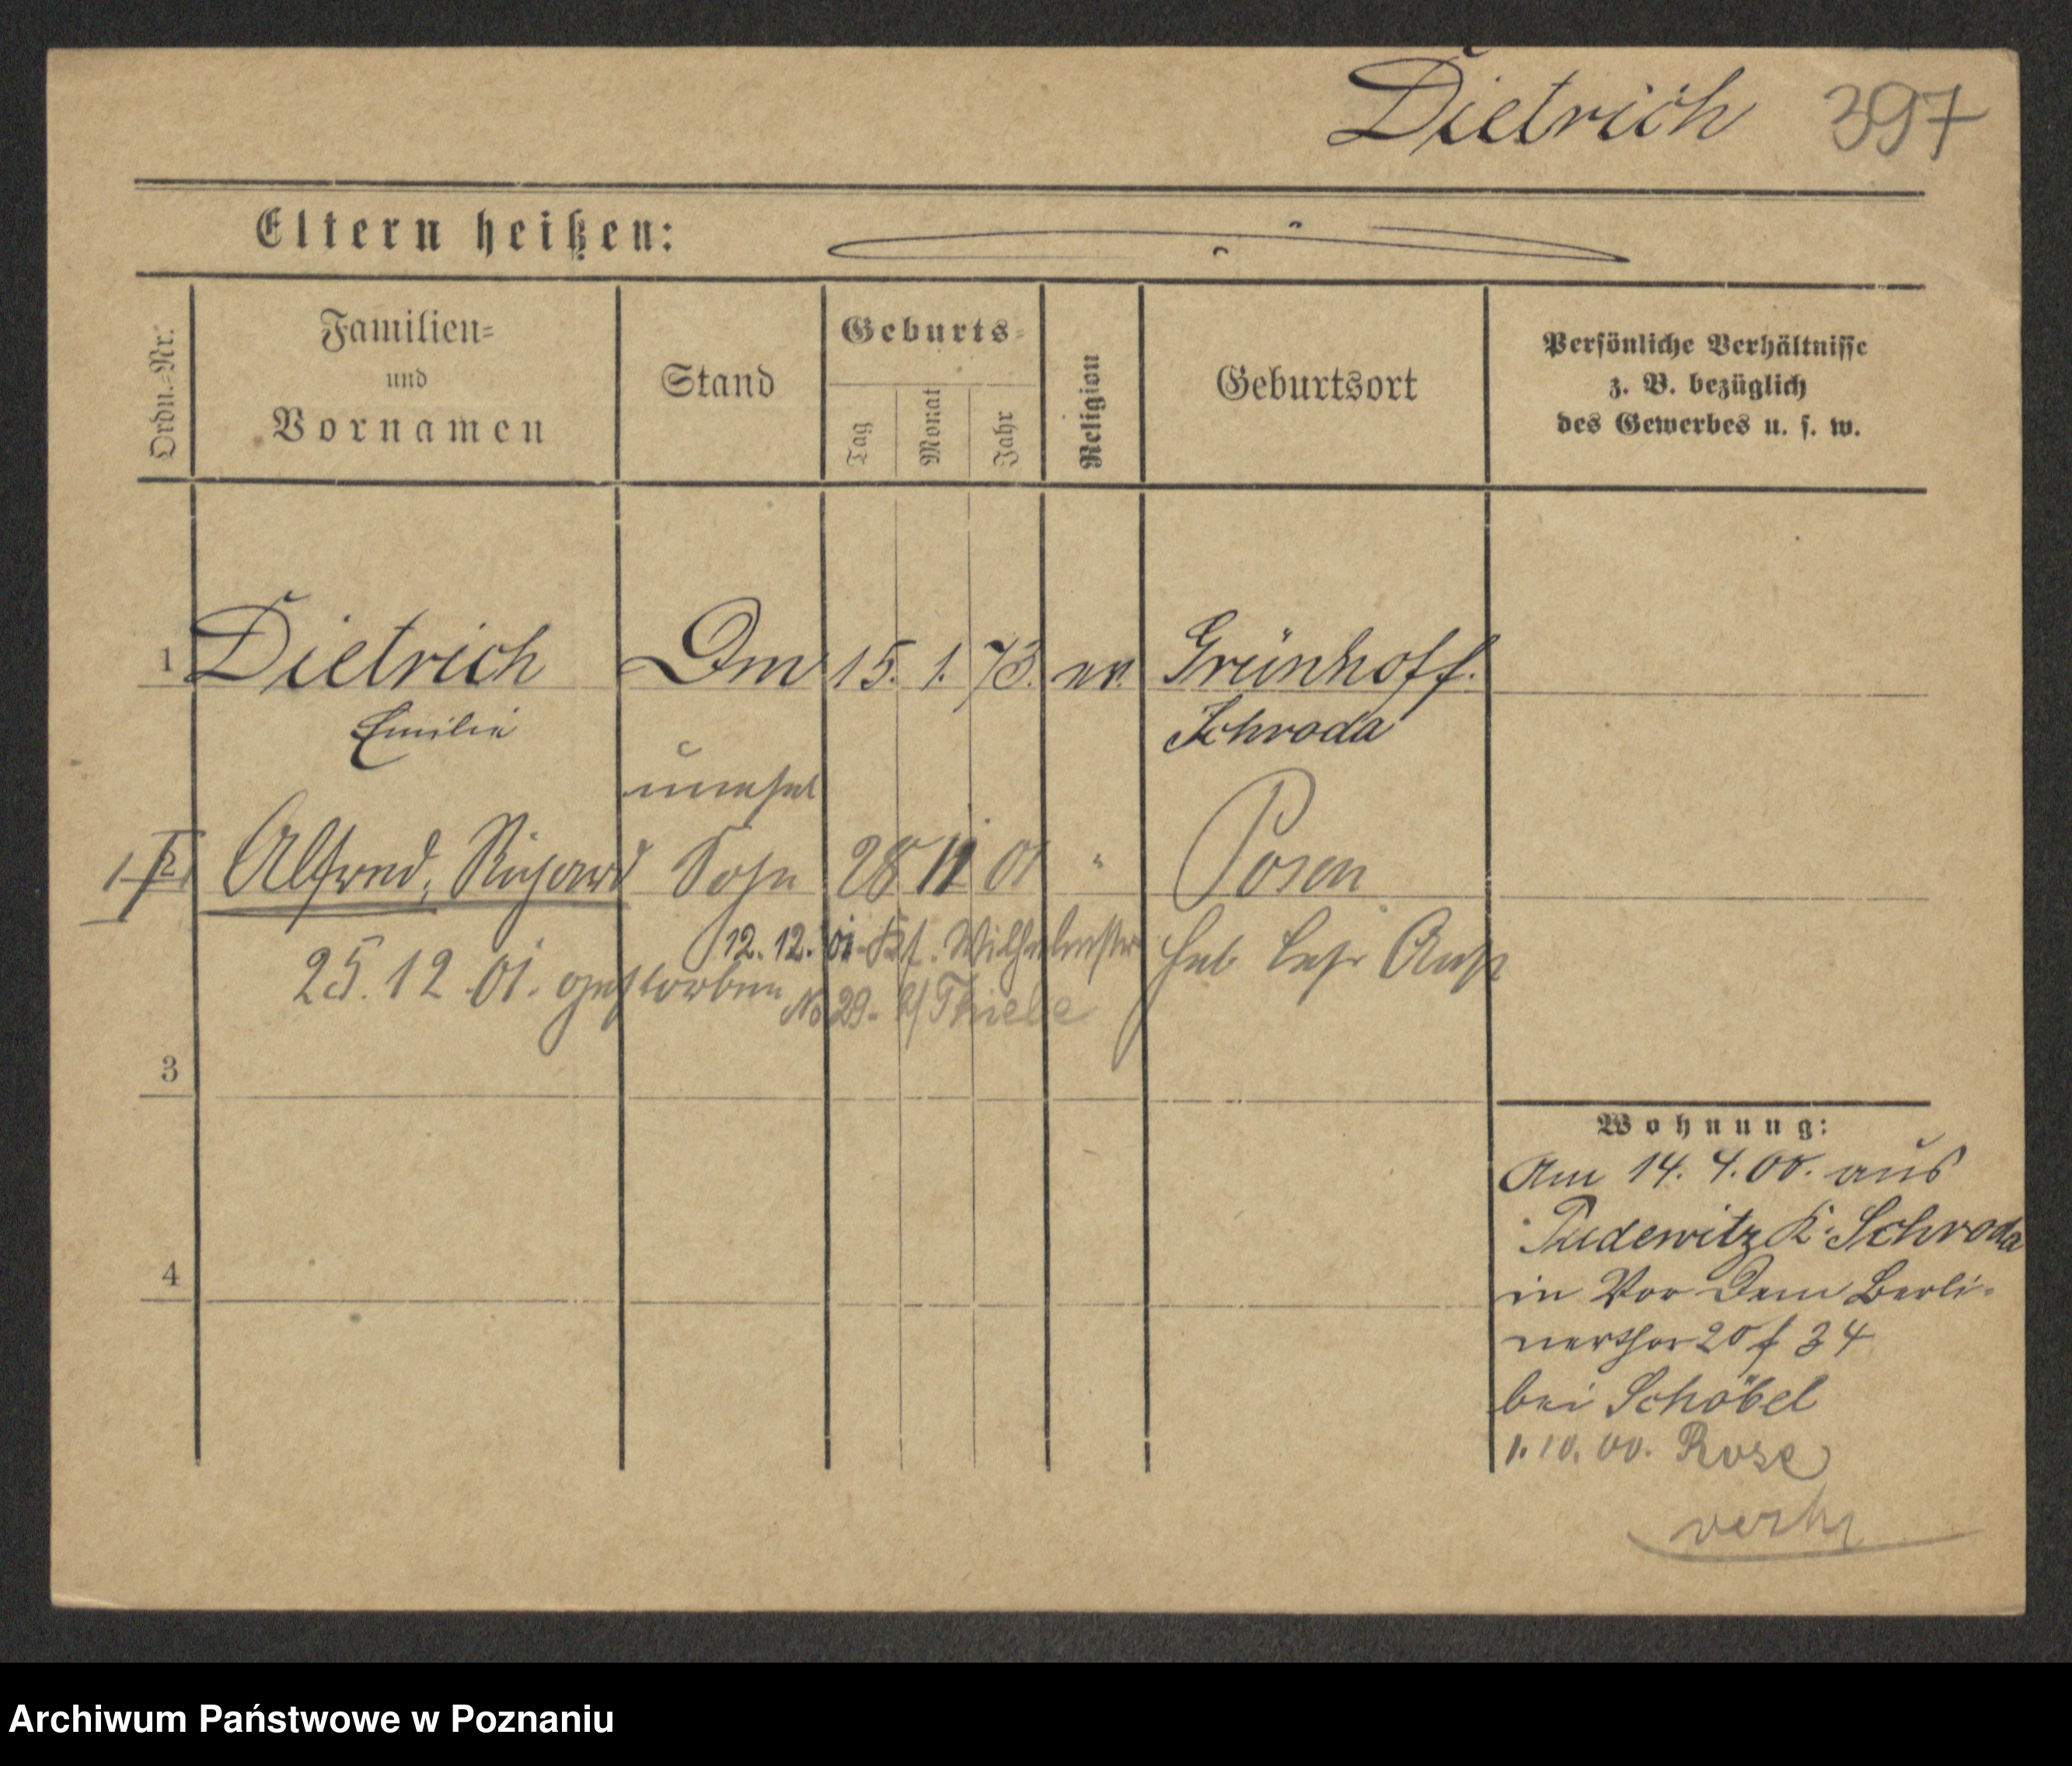 Dietrich 397
Eltern heißen:
Ordn.-Nr.
Familien-
und
Vornamen
Stand
Geburts-
Tag
Monat
Jahr
Religion
Geburtsort
Persönliche Verhältnisse
z. B. bezüglich
des Gewerbes u. s. w.
1 Dietrich Dm 15. 1. 73. ev. Grünhoff.
Emilie Schroda
unehel
Alfred, Richard Sohn 28 11 01 " Posen
12. 12. 01. Wilhelmstr
25. 12. 01. gestorben No 29. b/ Thiele
3
4
Wohnung:
Am 14. 4. 00. aus
Pudewitz K. Schroda
in Vor Dem Berli-
nerthor 20 f 34
bei Schöbel
1. 10. 00. Rose
verh
Archiwum Państwowe w Poznaniu